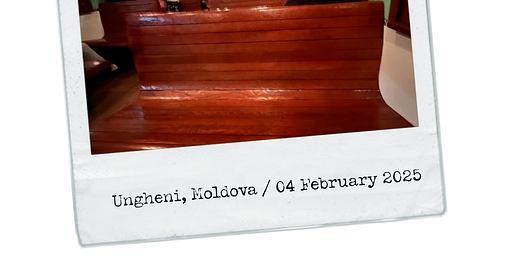 Ungheni, Moldova / 04 February 2025